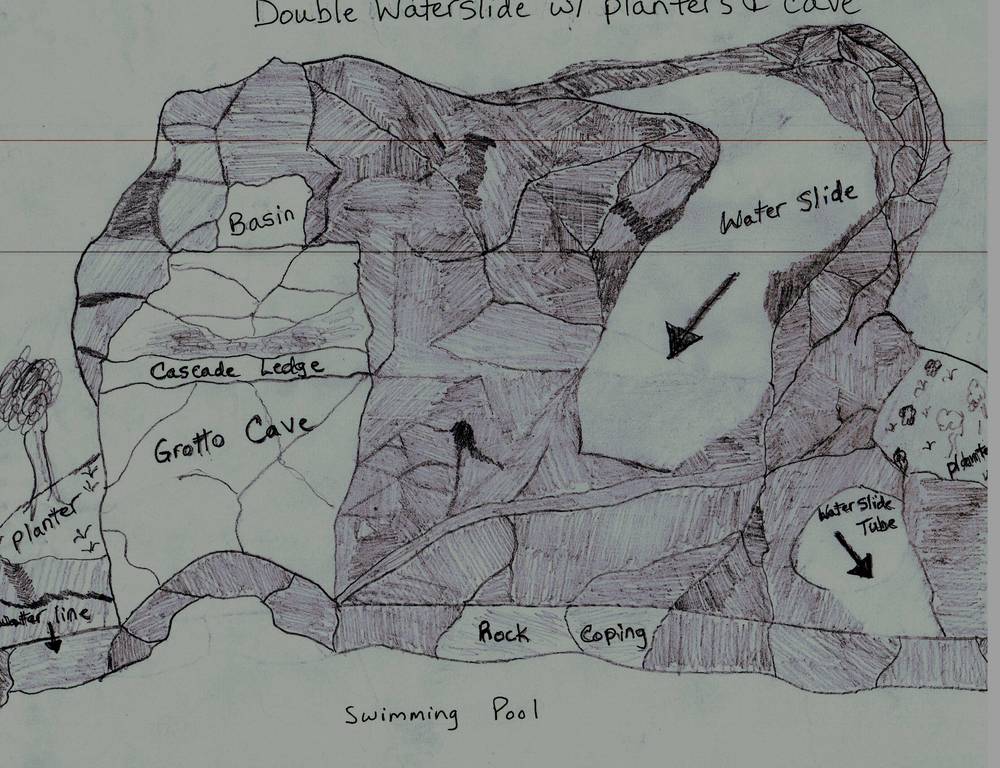 Double Waterslide w/ planters & cave
Basin
Water Slide
Cascade Ledge
Grotto Cave
planter
planter
Water Slide
Tube
water line
Rock
Coping
Swimming Pool